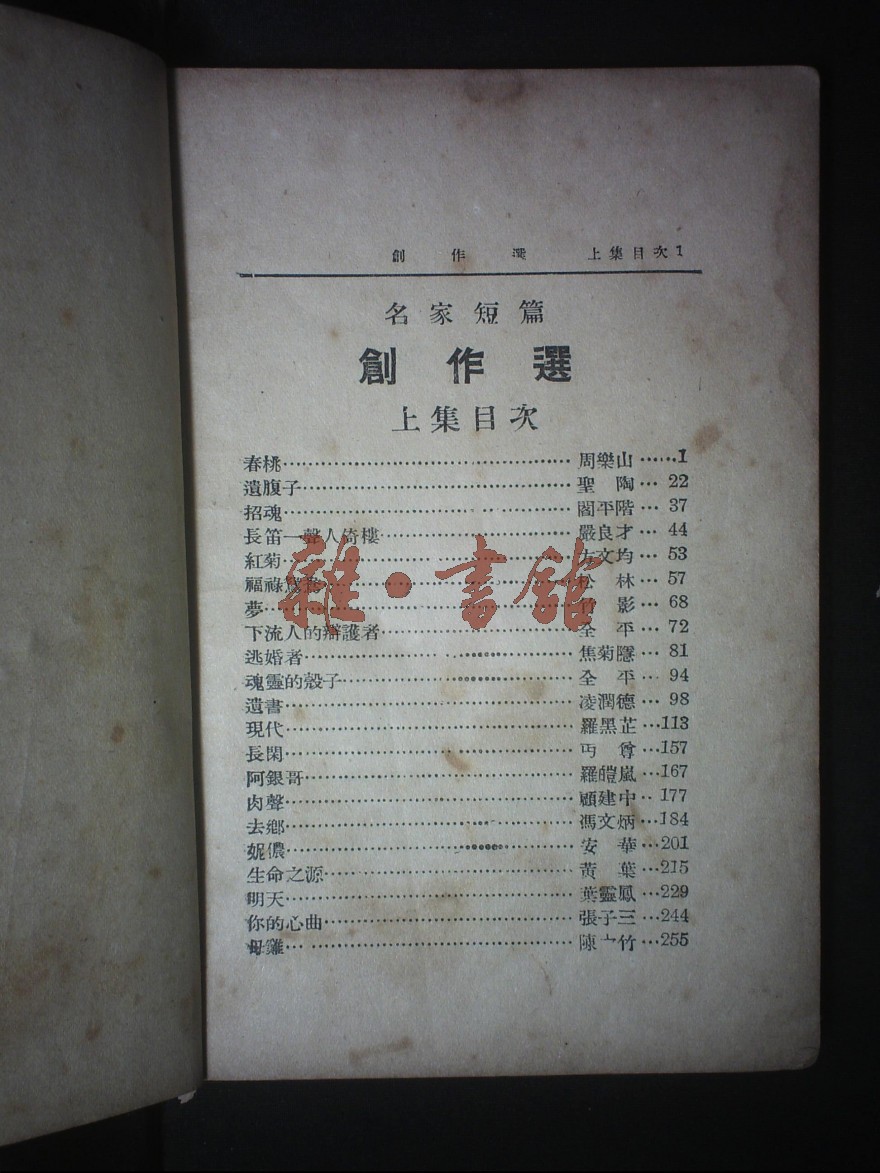 創作選 上集目次 1
名家短篇
創作選
上集目次
春桃 周樂山 1
遺腹子 聖陶 22
招魂 閻平階 37
長笛一聲人倚樓 嚴良才 44
紅菊 方文均 53
福祿 松林 57
夢 影 68
下流人的辯護者 全平 72
逃婚者 焦菊隱 81
魂靈的殼子 全平 94
遺書 凌潤德 98
現代 羅黑芷 113
長閑 丏尊 157
阿銀哥 羅皚嵐 167
肉聲 顧建中 177
去鄉 馮文炳 184
妮儂 安華 201
生命之源 黃葉 215
明天 葉靈鳳 229
你的心曲 張子三 244
母雞 陳亠竹 255
雜·書館